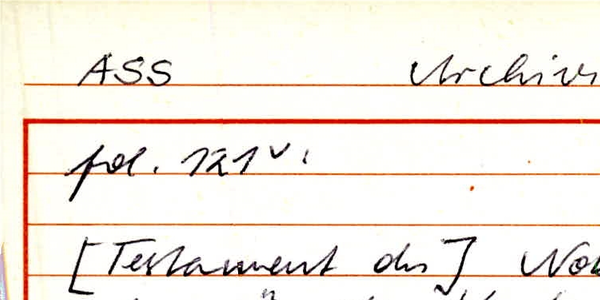 ASS Archiv
fol. 121v:
[Testament des] No